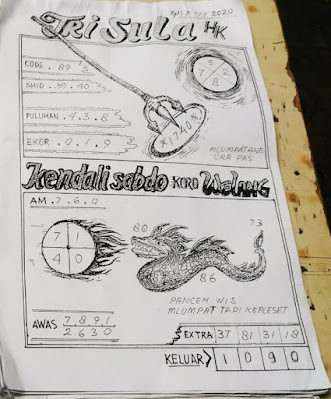 Tri Sula HK
CODE . 89
5 2
7 8
SHIO . 39 . 40
PULUHAN . 4 . 3 . 8
EKOR . 0 . 1 . 9
×1740×
MLUMPATANE
ORA PAS
Kendali sabdo KORO Welang
AM . 7 . 6 . 0
7 1
4 0
80
73
86
PANCEN WIS
MLUMPAT TAPI KEPLESET
AWAS 7 8 9 1
2 6 3 0
EXTRA 37 81 31 18
KELUAR 1 0 9 0